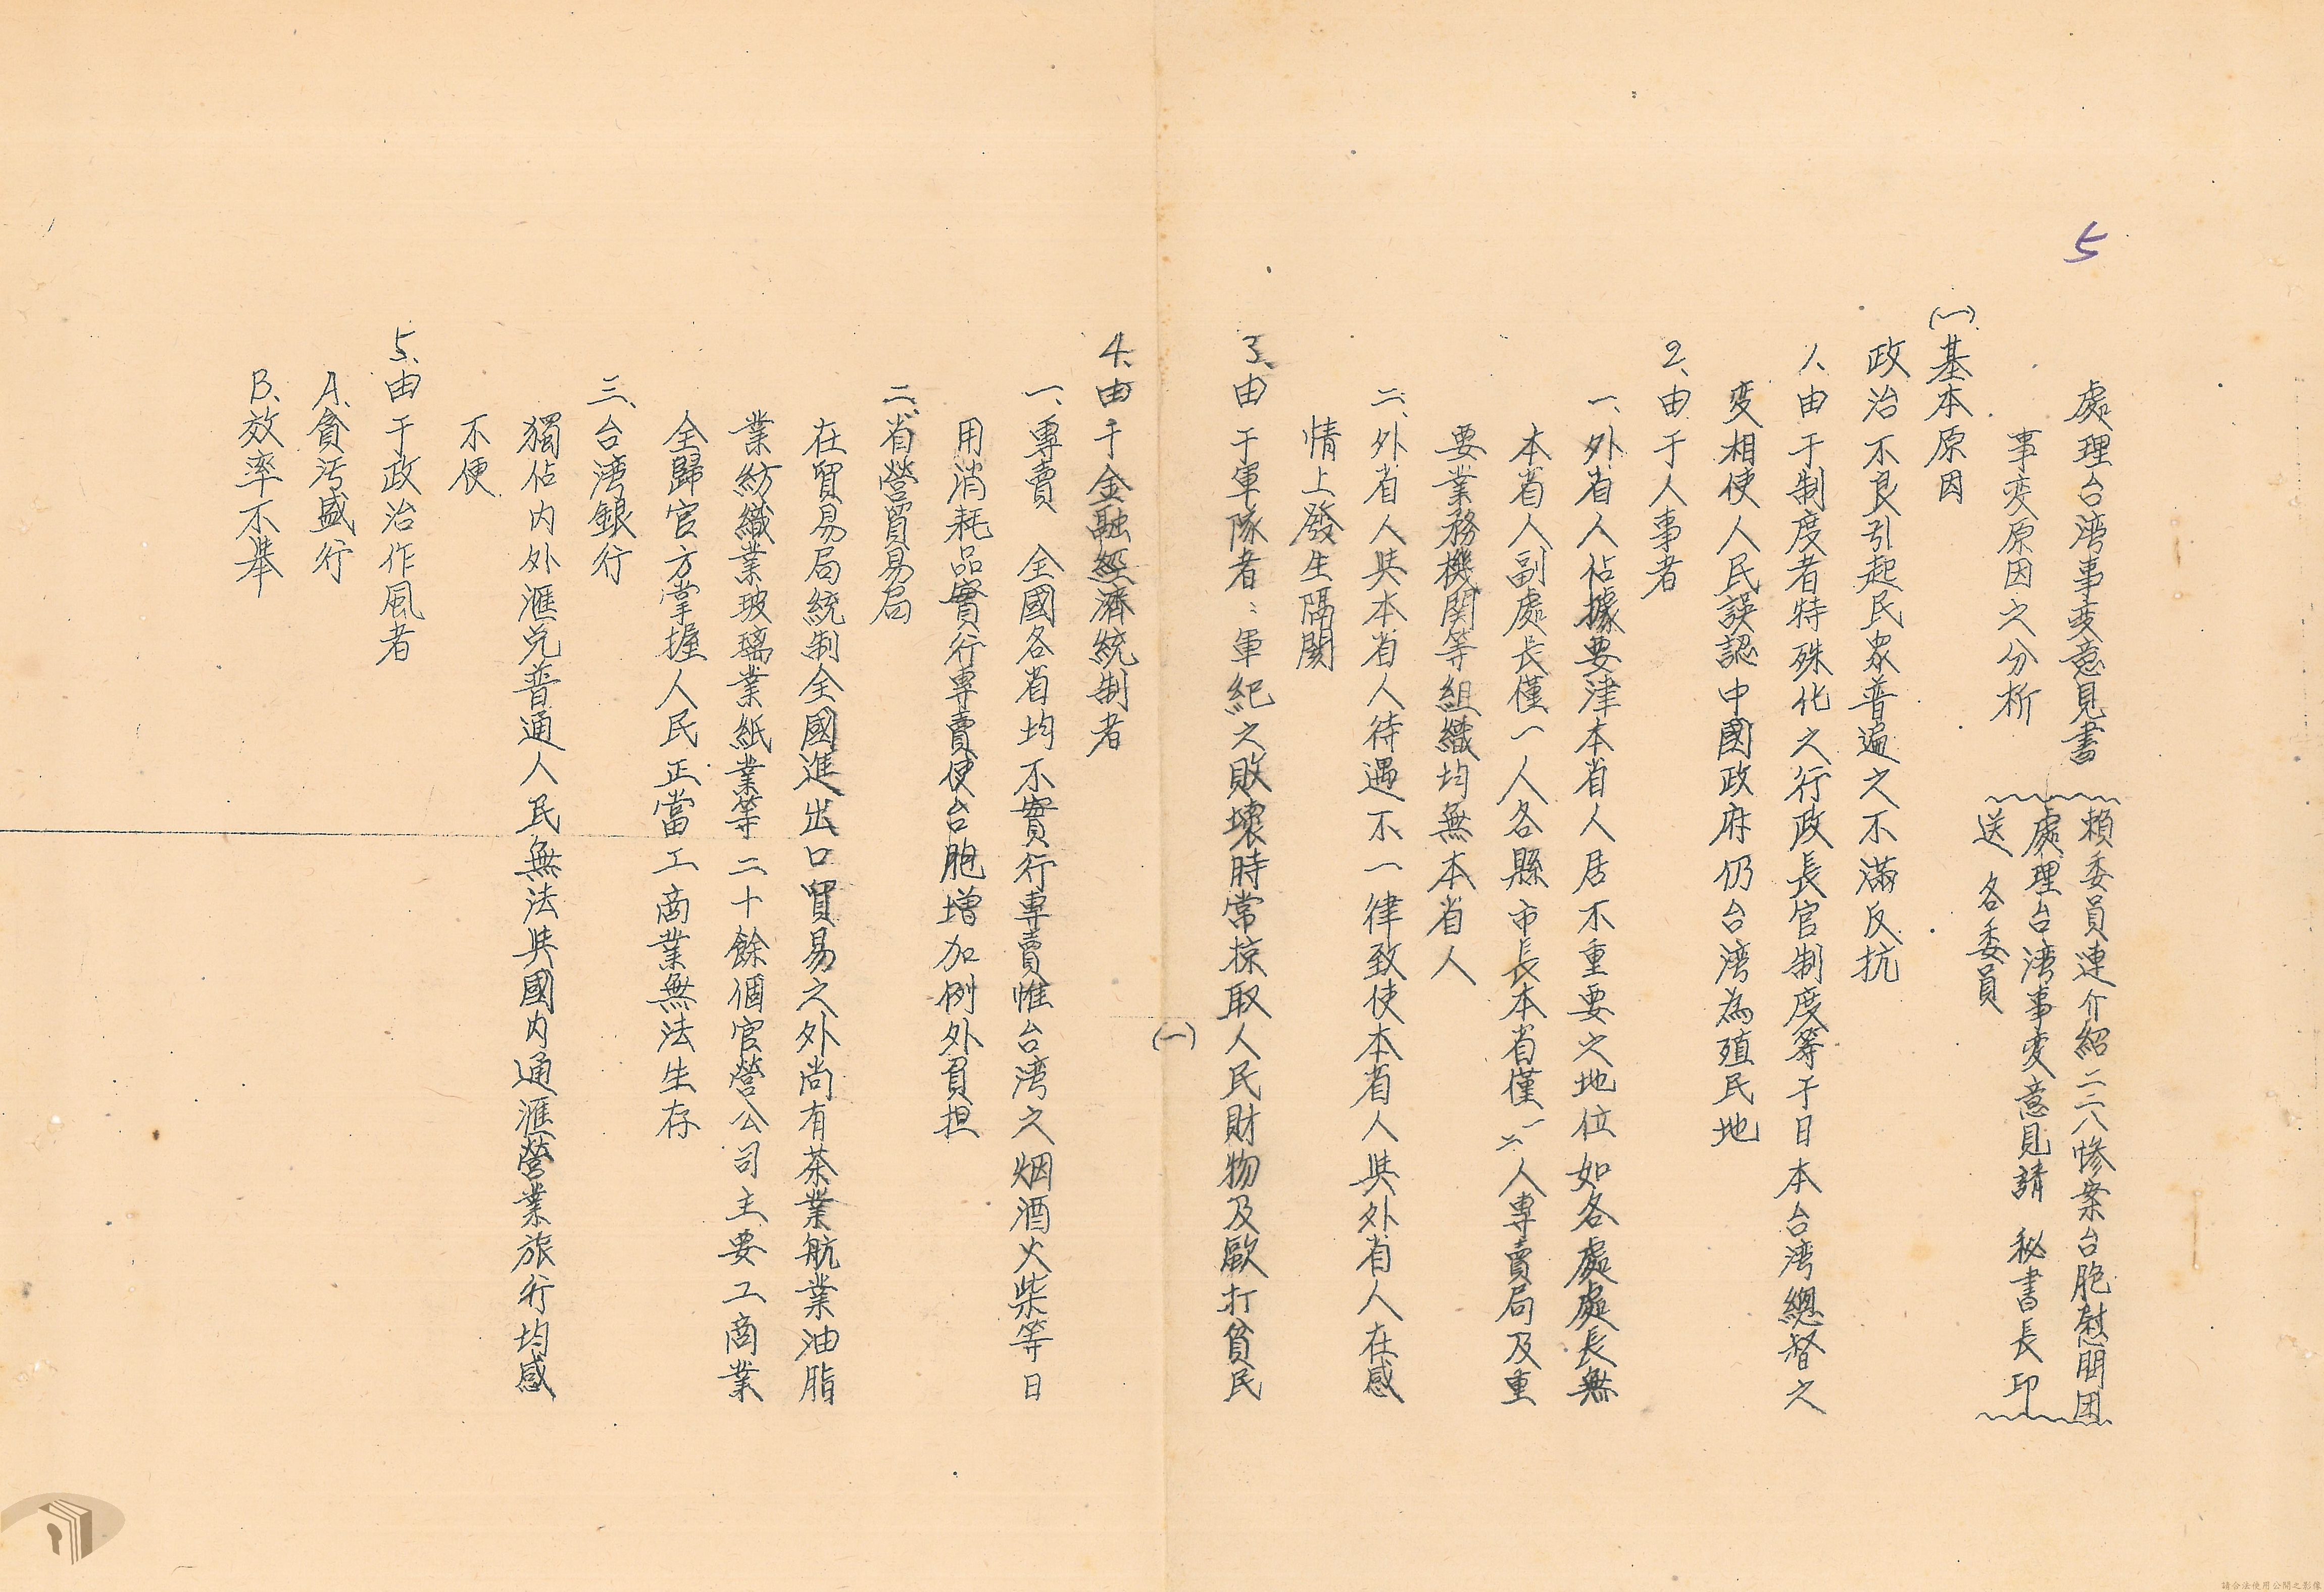 5
處理台湾事变意見書
賴委員連介紹二二八慘案台胞慰問团
處理台湾事变意見請 秘書長印
送 各委員
事变原因之分析
(一)基本原因
政治不良引起民众普遍之不滿反抗
1、由于制度者特殊化之行政長官制度等于日本台湾總督之
变相使人民誤認中國政府仍台湾為殖民地
2、由于人事者
一、外省人佔據要津本省人居不重要之地位如各處處長無
本省人副處長僅一人各縣市長本省僅一二人專賣局及重
要業務機関等組織均無本省人
二、外省人與本省人待遇不一律致使本省人與外省人在感
情上發生隔閡
3、由于軍隊者：軍紀之敗壞時常掠取人民財物及毆打貧民
(一)
4、由于金融經濟統制者
一、專賣 全國各省均不實行專賣惟台湾之烟酒火柴等日
用消耗品實行專賣使台胞增加例外負担
二、省營貿易局
在貿易局統制全國進出口貿易之外尚有茶業航業油脂
業紡織業玻璃業紙業等二十餘個官營公司主要工商業
全歸官方掌握人民正當工商業無法生存
三、台湾銀行
獨佔内外滙兑普通人民無法與國内通滙營業旅行均感
不便
5、由于政治作風者
A、貪污盛行
B、效率不举
請合法使用公開之影像